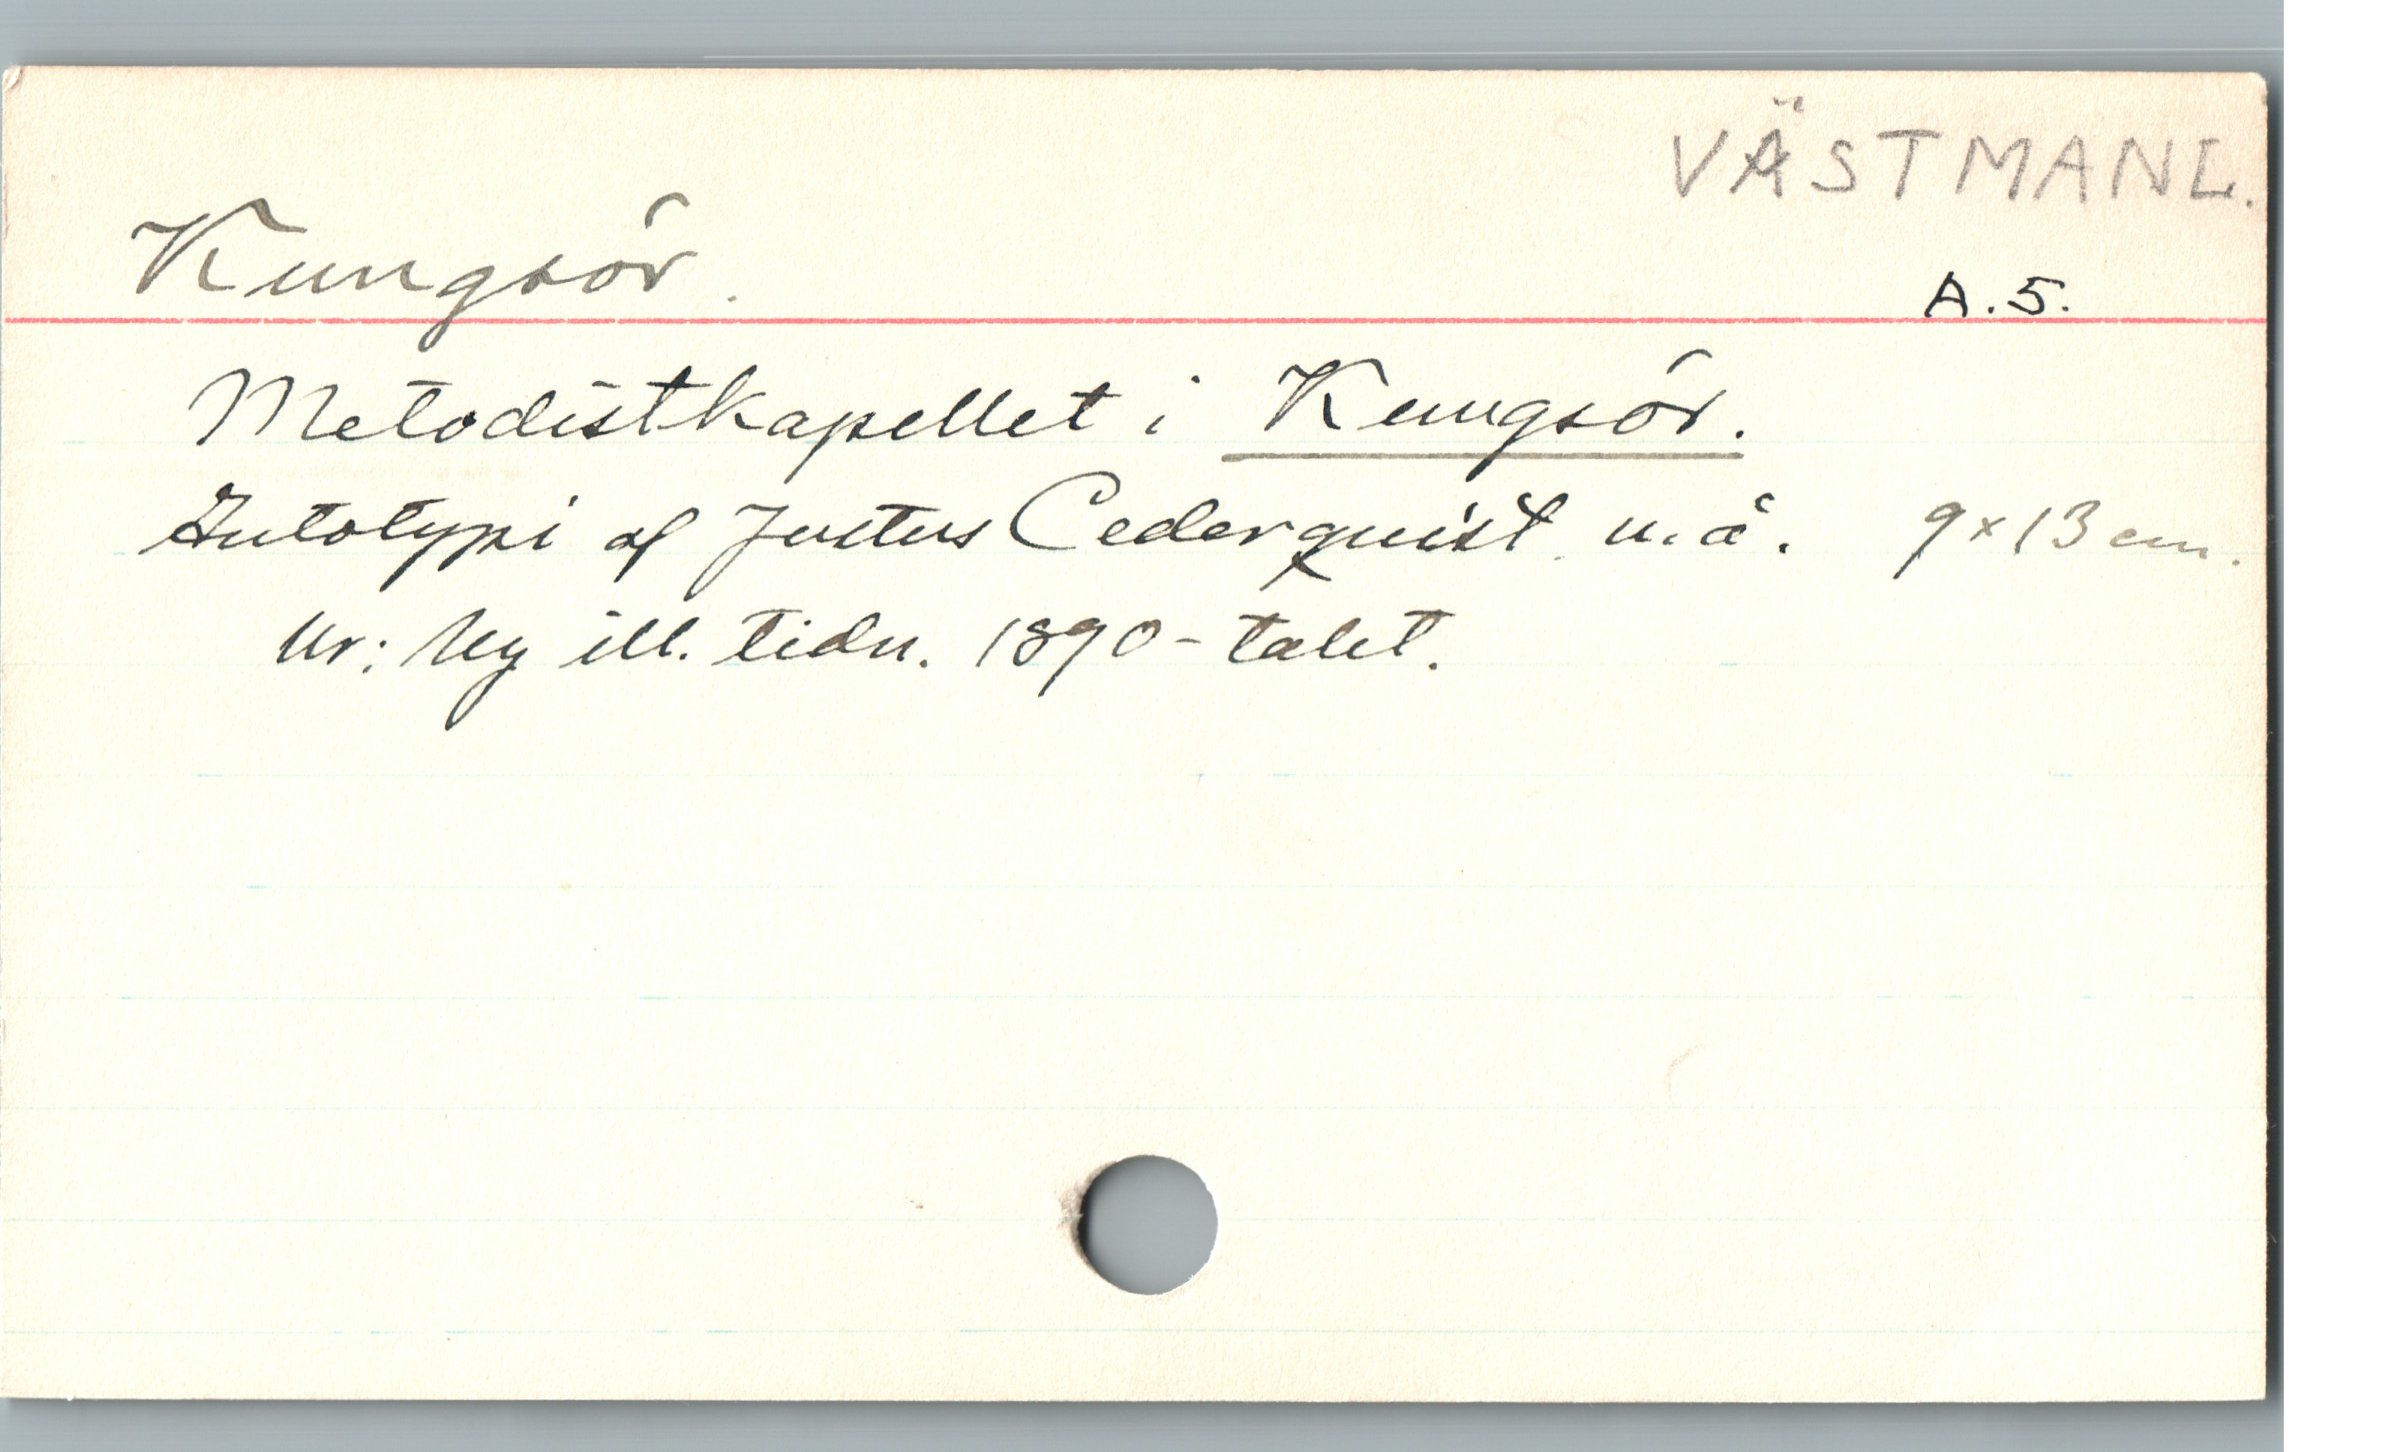 VÄSTMANL.
Kungsör.
A.5.
Metodistkapellet i Kungsör.
Autotypi af Justus Cederquist u.å. 9x13 cm.
Ur: Ny ill. tidn. 1890-talet.